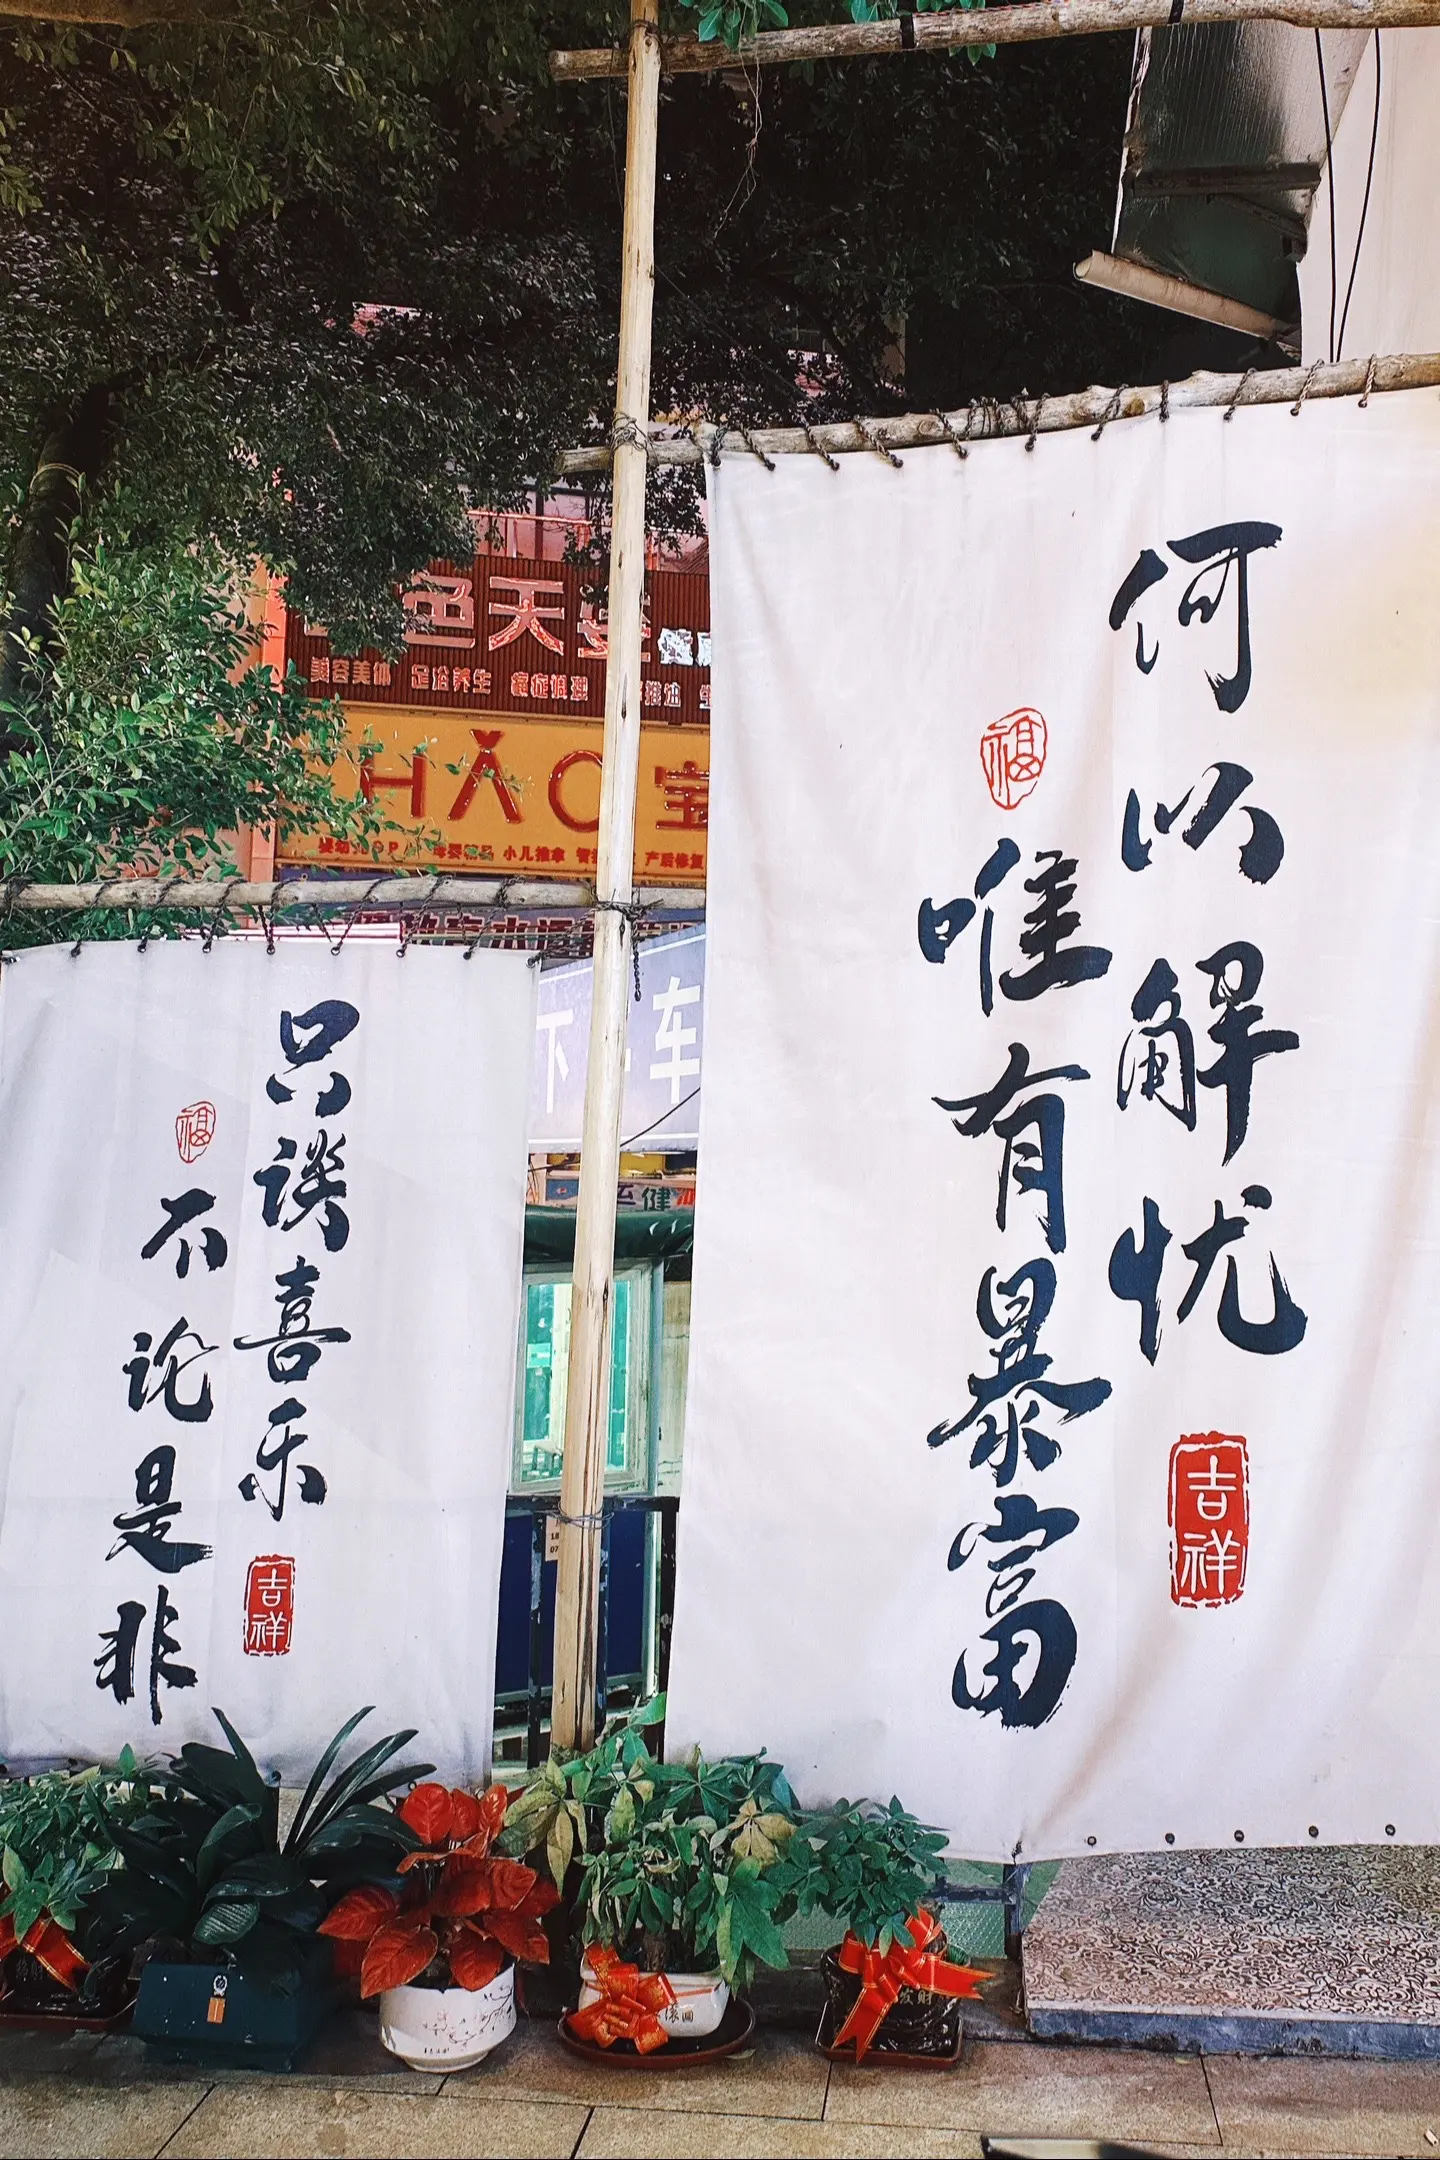 何以解忧
吉祥
福
唯有暴富
只谈喜乐
吉祥
福
不论是非
色天
美容美体 足浴养生 调理 排油
HAO 宝
小儿推拿 产后修复
下 车
健